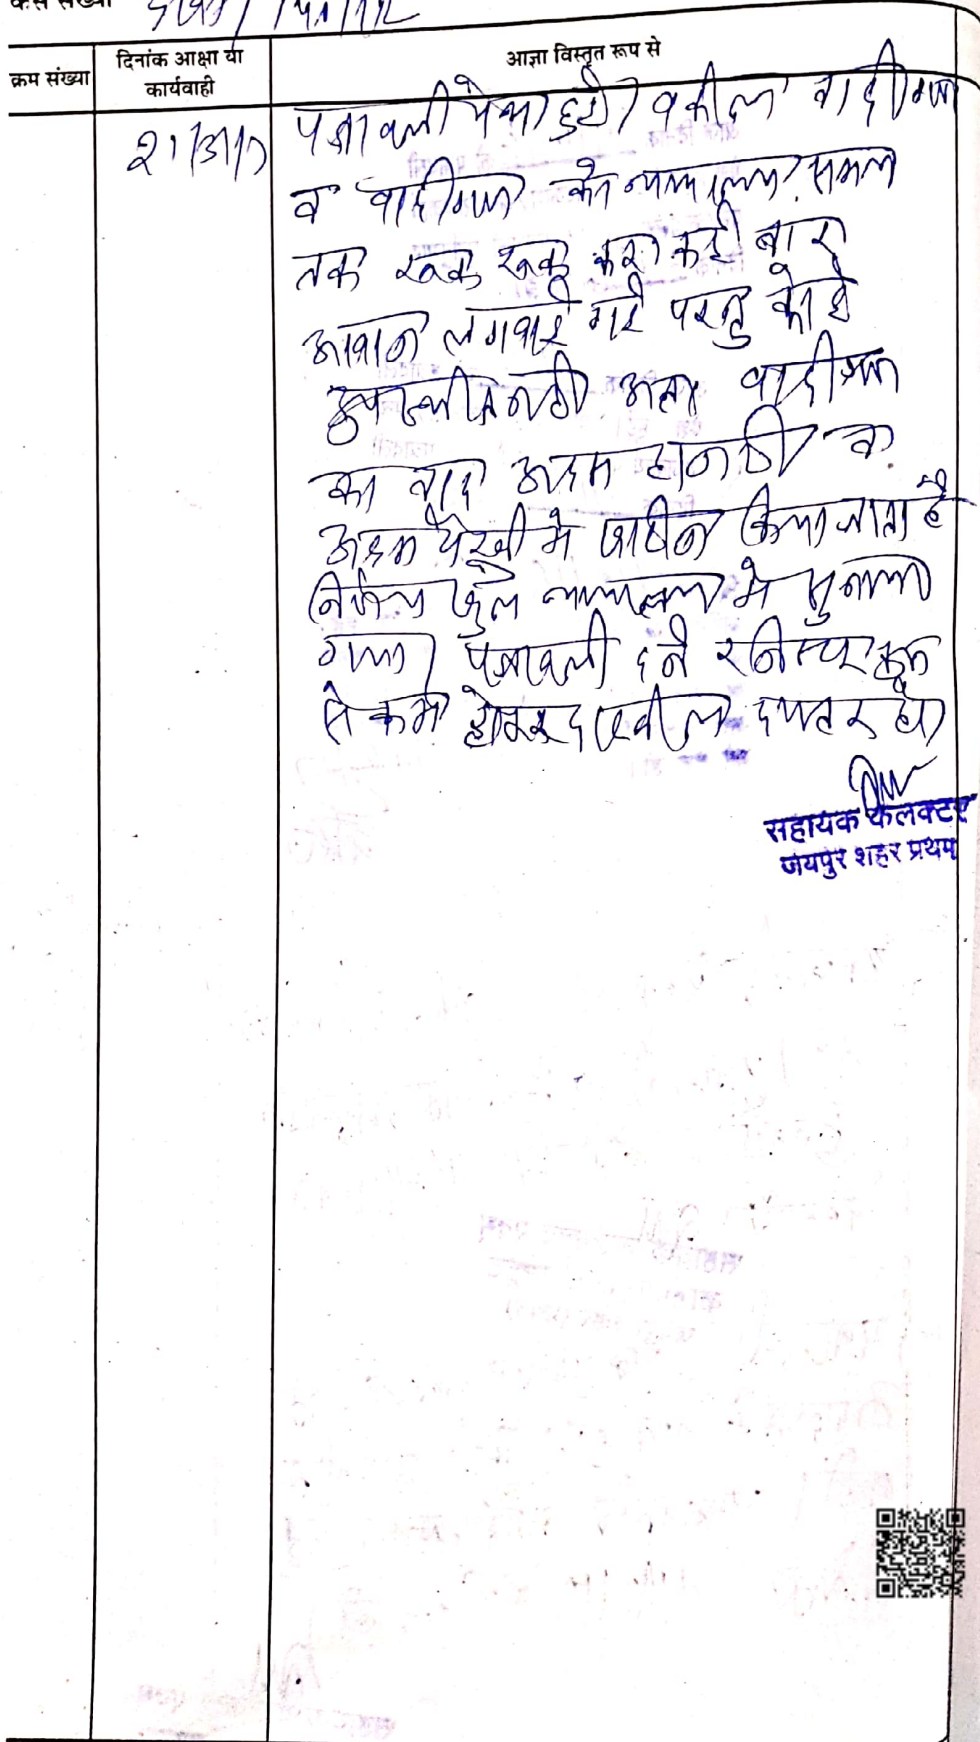 केस संख्या
क्रम संख्या
दिनांक आक्षा या
कार्यवाही
आज्ञा विस्तृत रूप से
पत्रावली पेश हुई। वकील वादीगण
व वादीगण को न्यायालय समय
तक रूक रूक कर कई बार
आवाज लगवाई गई परन्तु कोई
उपस्थित नही अतः वादीगण
का वाद अदम हाजरी व
अदम पैरवी मे खारीज किया जाता है
निर्णय खुले न्यायालय मे सुनाया
गया। पत्रावली दर्ज रजिस्टर
से कम होकर दाखील दफ्तर हो।
सहायक कलक्टर
जयपुर शहर प्रथम